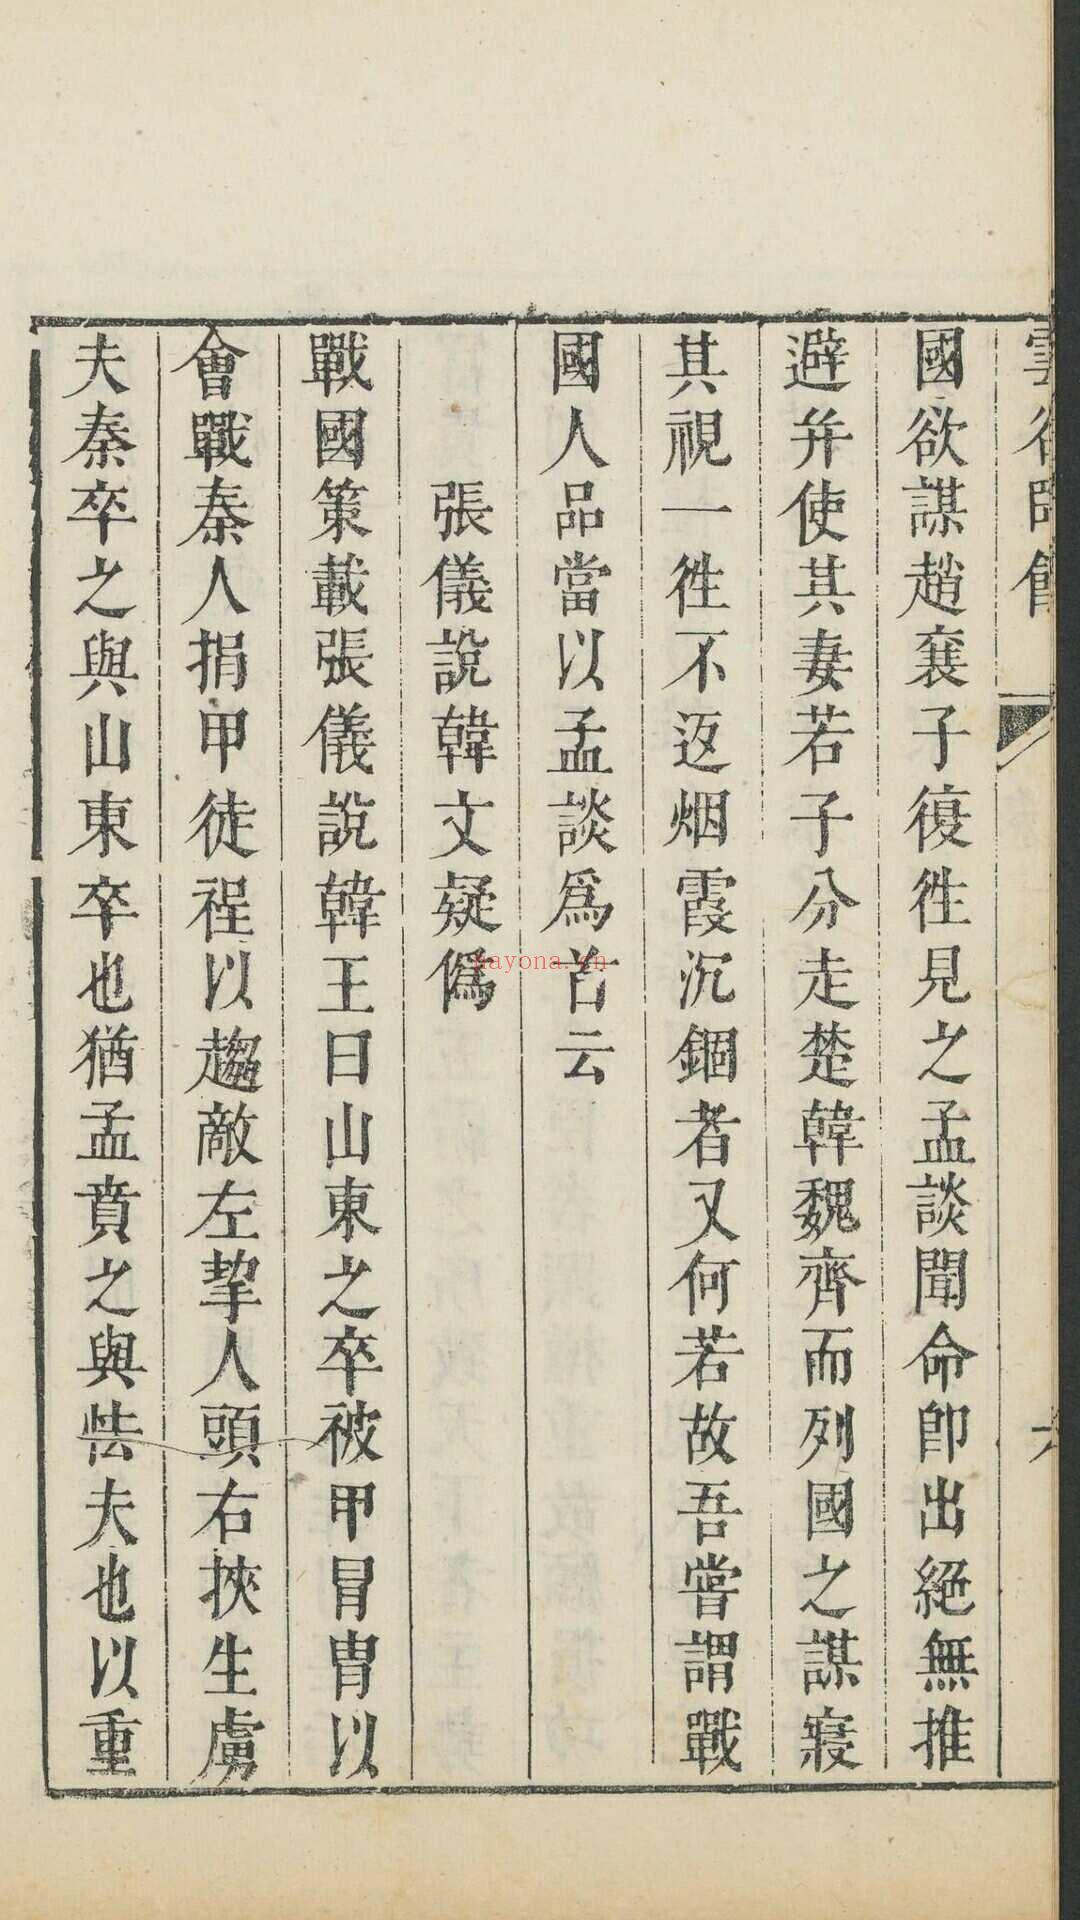 國欲謀趙襄子復徃見之孟談聞命卽出絕無推
避幷使其妻若子分走楚韓魏齊而列國之謀寢
其視一徃不返烟霞沉錮者又何若故吾嘗謂戰
國人品當以孟談爲首云
張儀說韓文疑僞
戰國策載張儀說韓王曰山東之卒被甲冒冑以
會戰秦人捐甲徒裎以趨敵左挈人頭右挾生虜
夫秦卒之與山東卒也猶孟賁之與怯夫也以重
nayona.cn